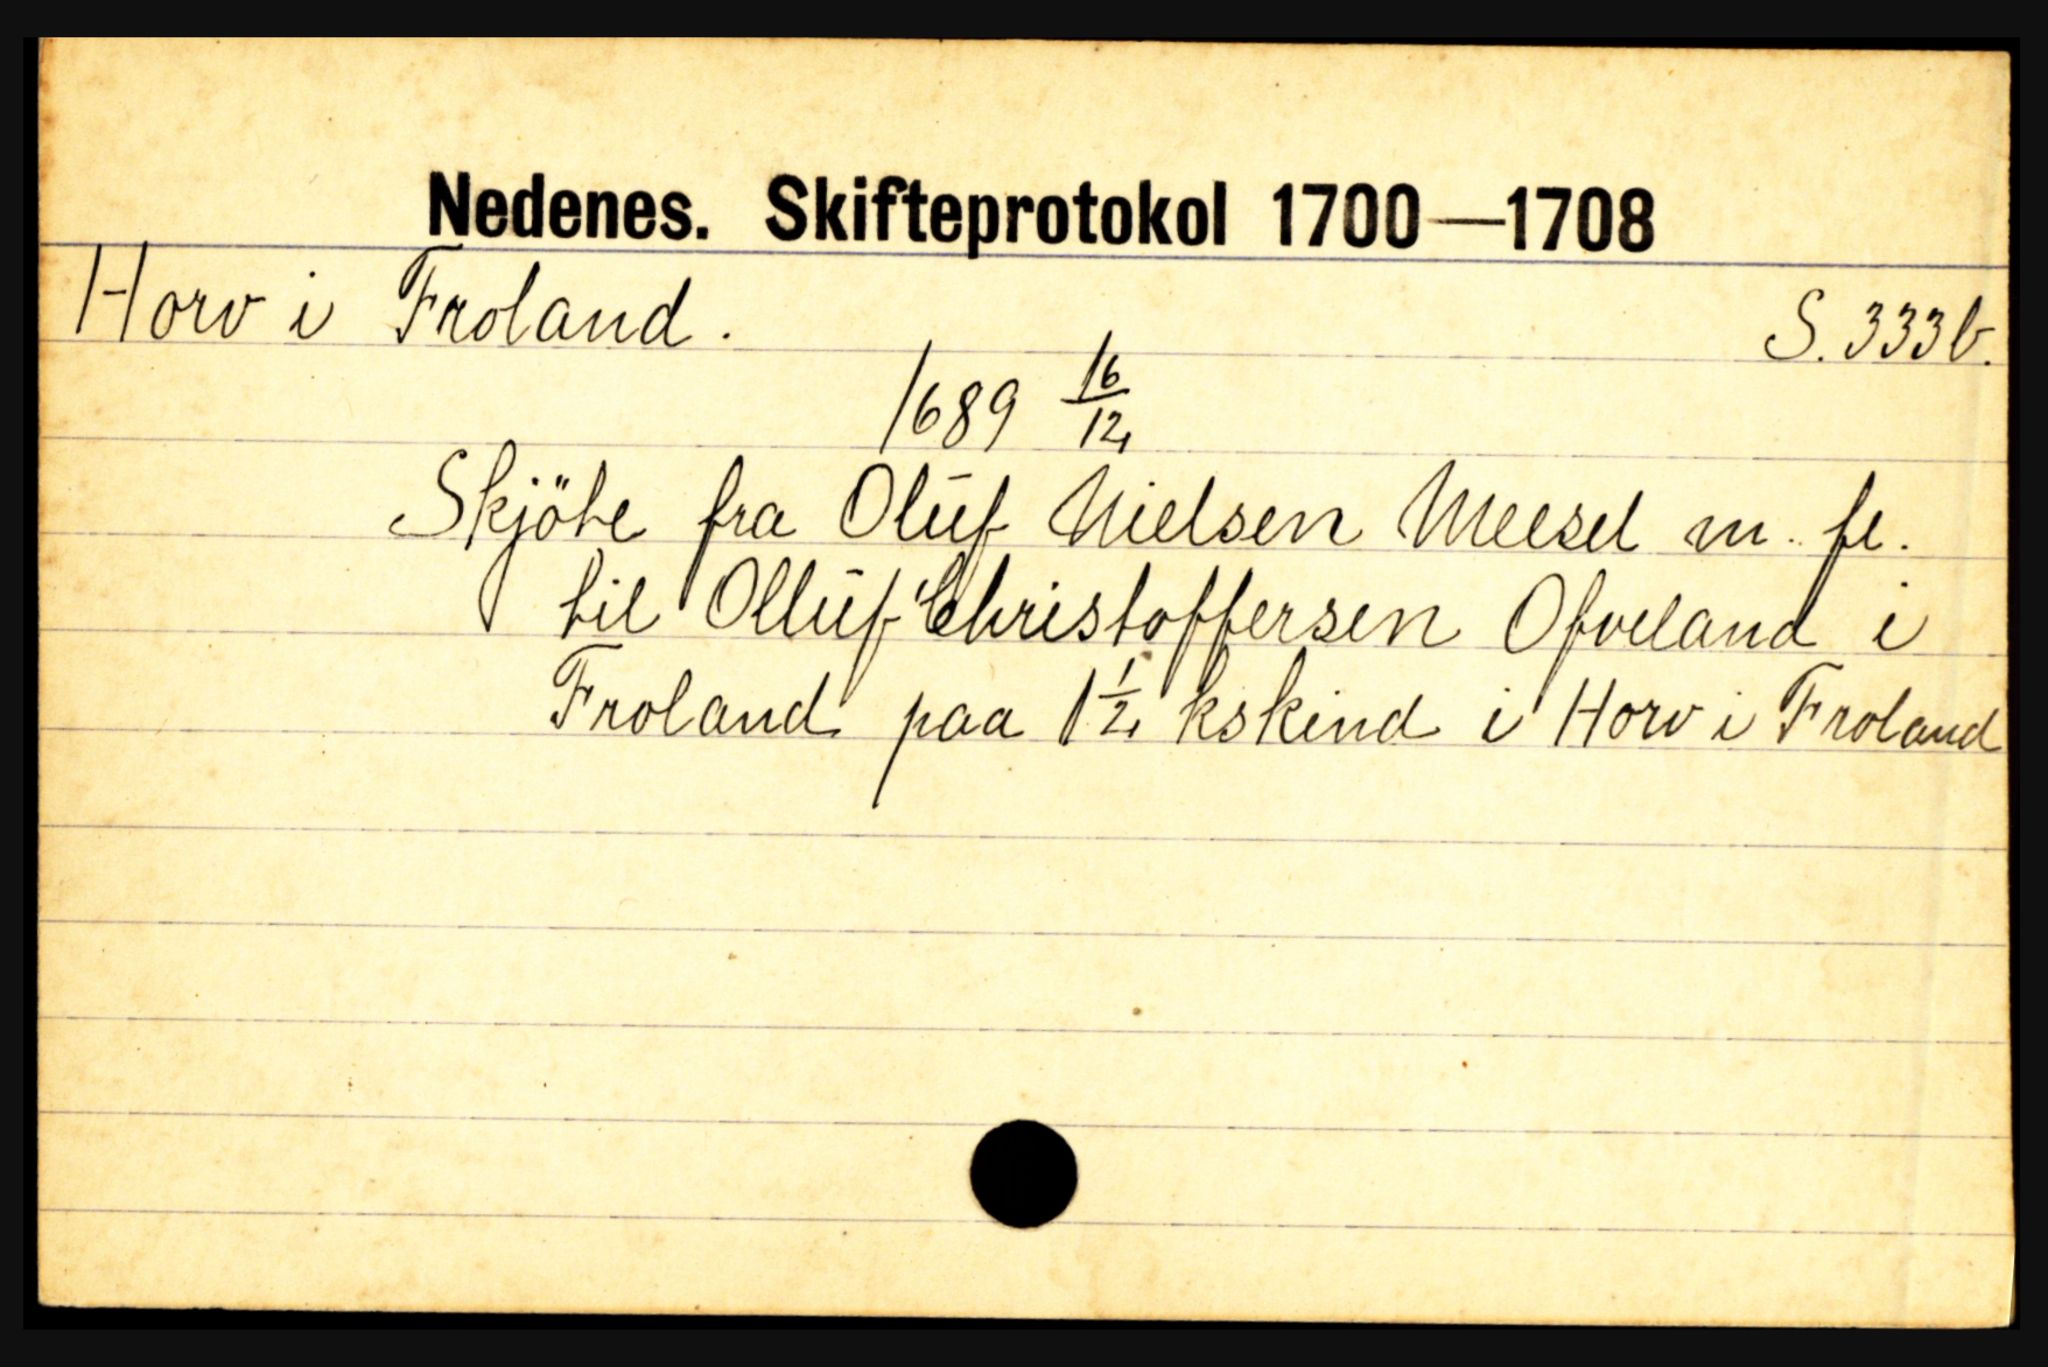 Nedenes. Skifteprotokol 1700—1708
Horv i Froland. S. 333b.
1689 16/12
Skjöte fra Oluf Nielsen Meesel m. fl.
til Olluf Christoffersen Ofveland i
Froland paa 1 1/2 kskind i Horv i Froland